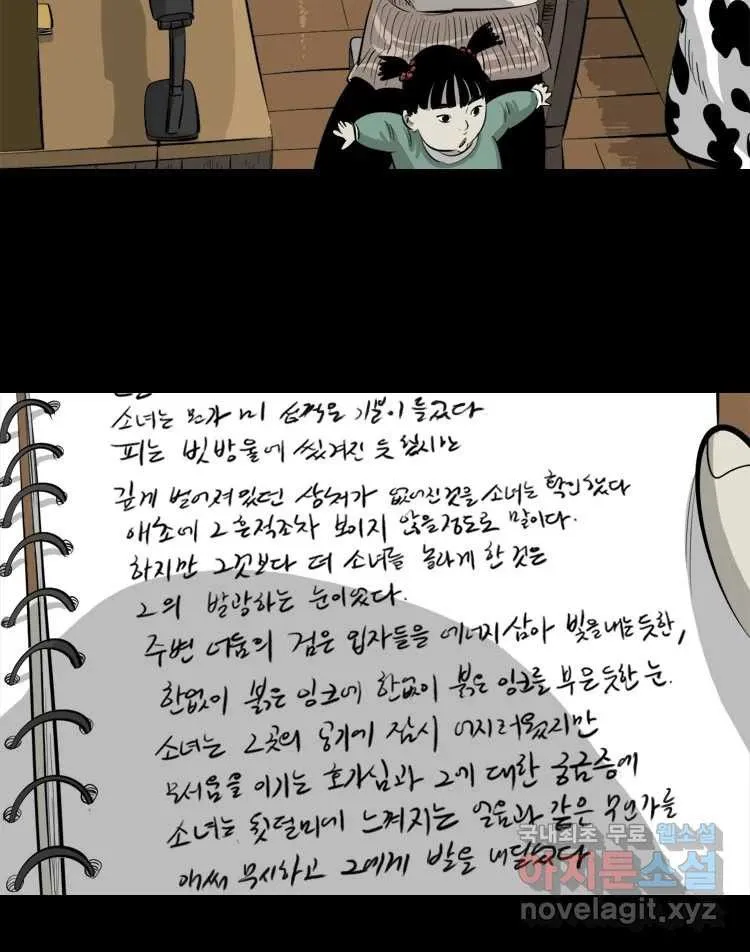 소녀는 뭔가 미심쩍은 기분이 들었다
피는 빗방울에 씻겨진 듯 했지만
깊게 벌어져있던 상처가 없어진것을 소녀는 확인했다
애초에 그 흔적조차 보이지 않을정도로 말이다.
하지만 그것보다 더 소녀를 놀라게 한 것은
그의 발광하는 눈이었다.
주변 어둠의 검은 입자들을 에너지삼아 빛을내는듯한,
한없이 붉은 잉크에 한없이 붉은 잉크를 부은듯한 눈.
소녀는 그곳의 공기에 잠시 어지러웠지만
무서움을 이기는 호기심과 그에 대한 궁금증에
소녀는 뒷덜미에 느껴지는 얼음과 같은 무언가를
애써 무시하고 그에게 발을 내딛었다
국내최초 무료 웹소설
아지툰소설
novelagit.xyz